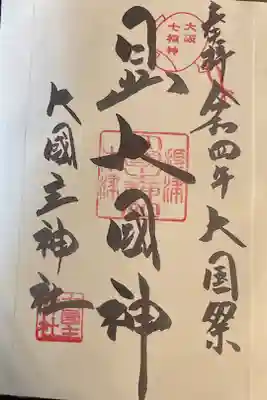 奉拝 令和四年大国祭
大阪
七福神
大國神
大國主神社